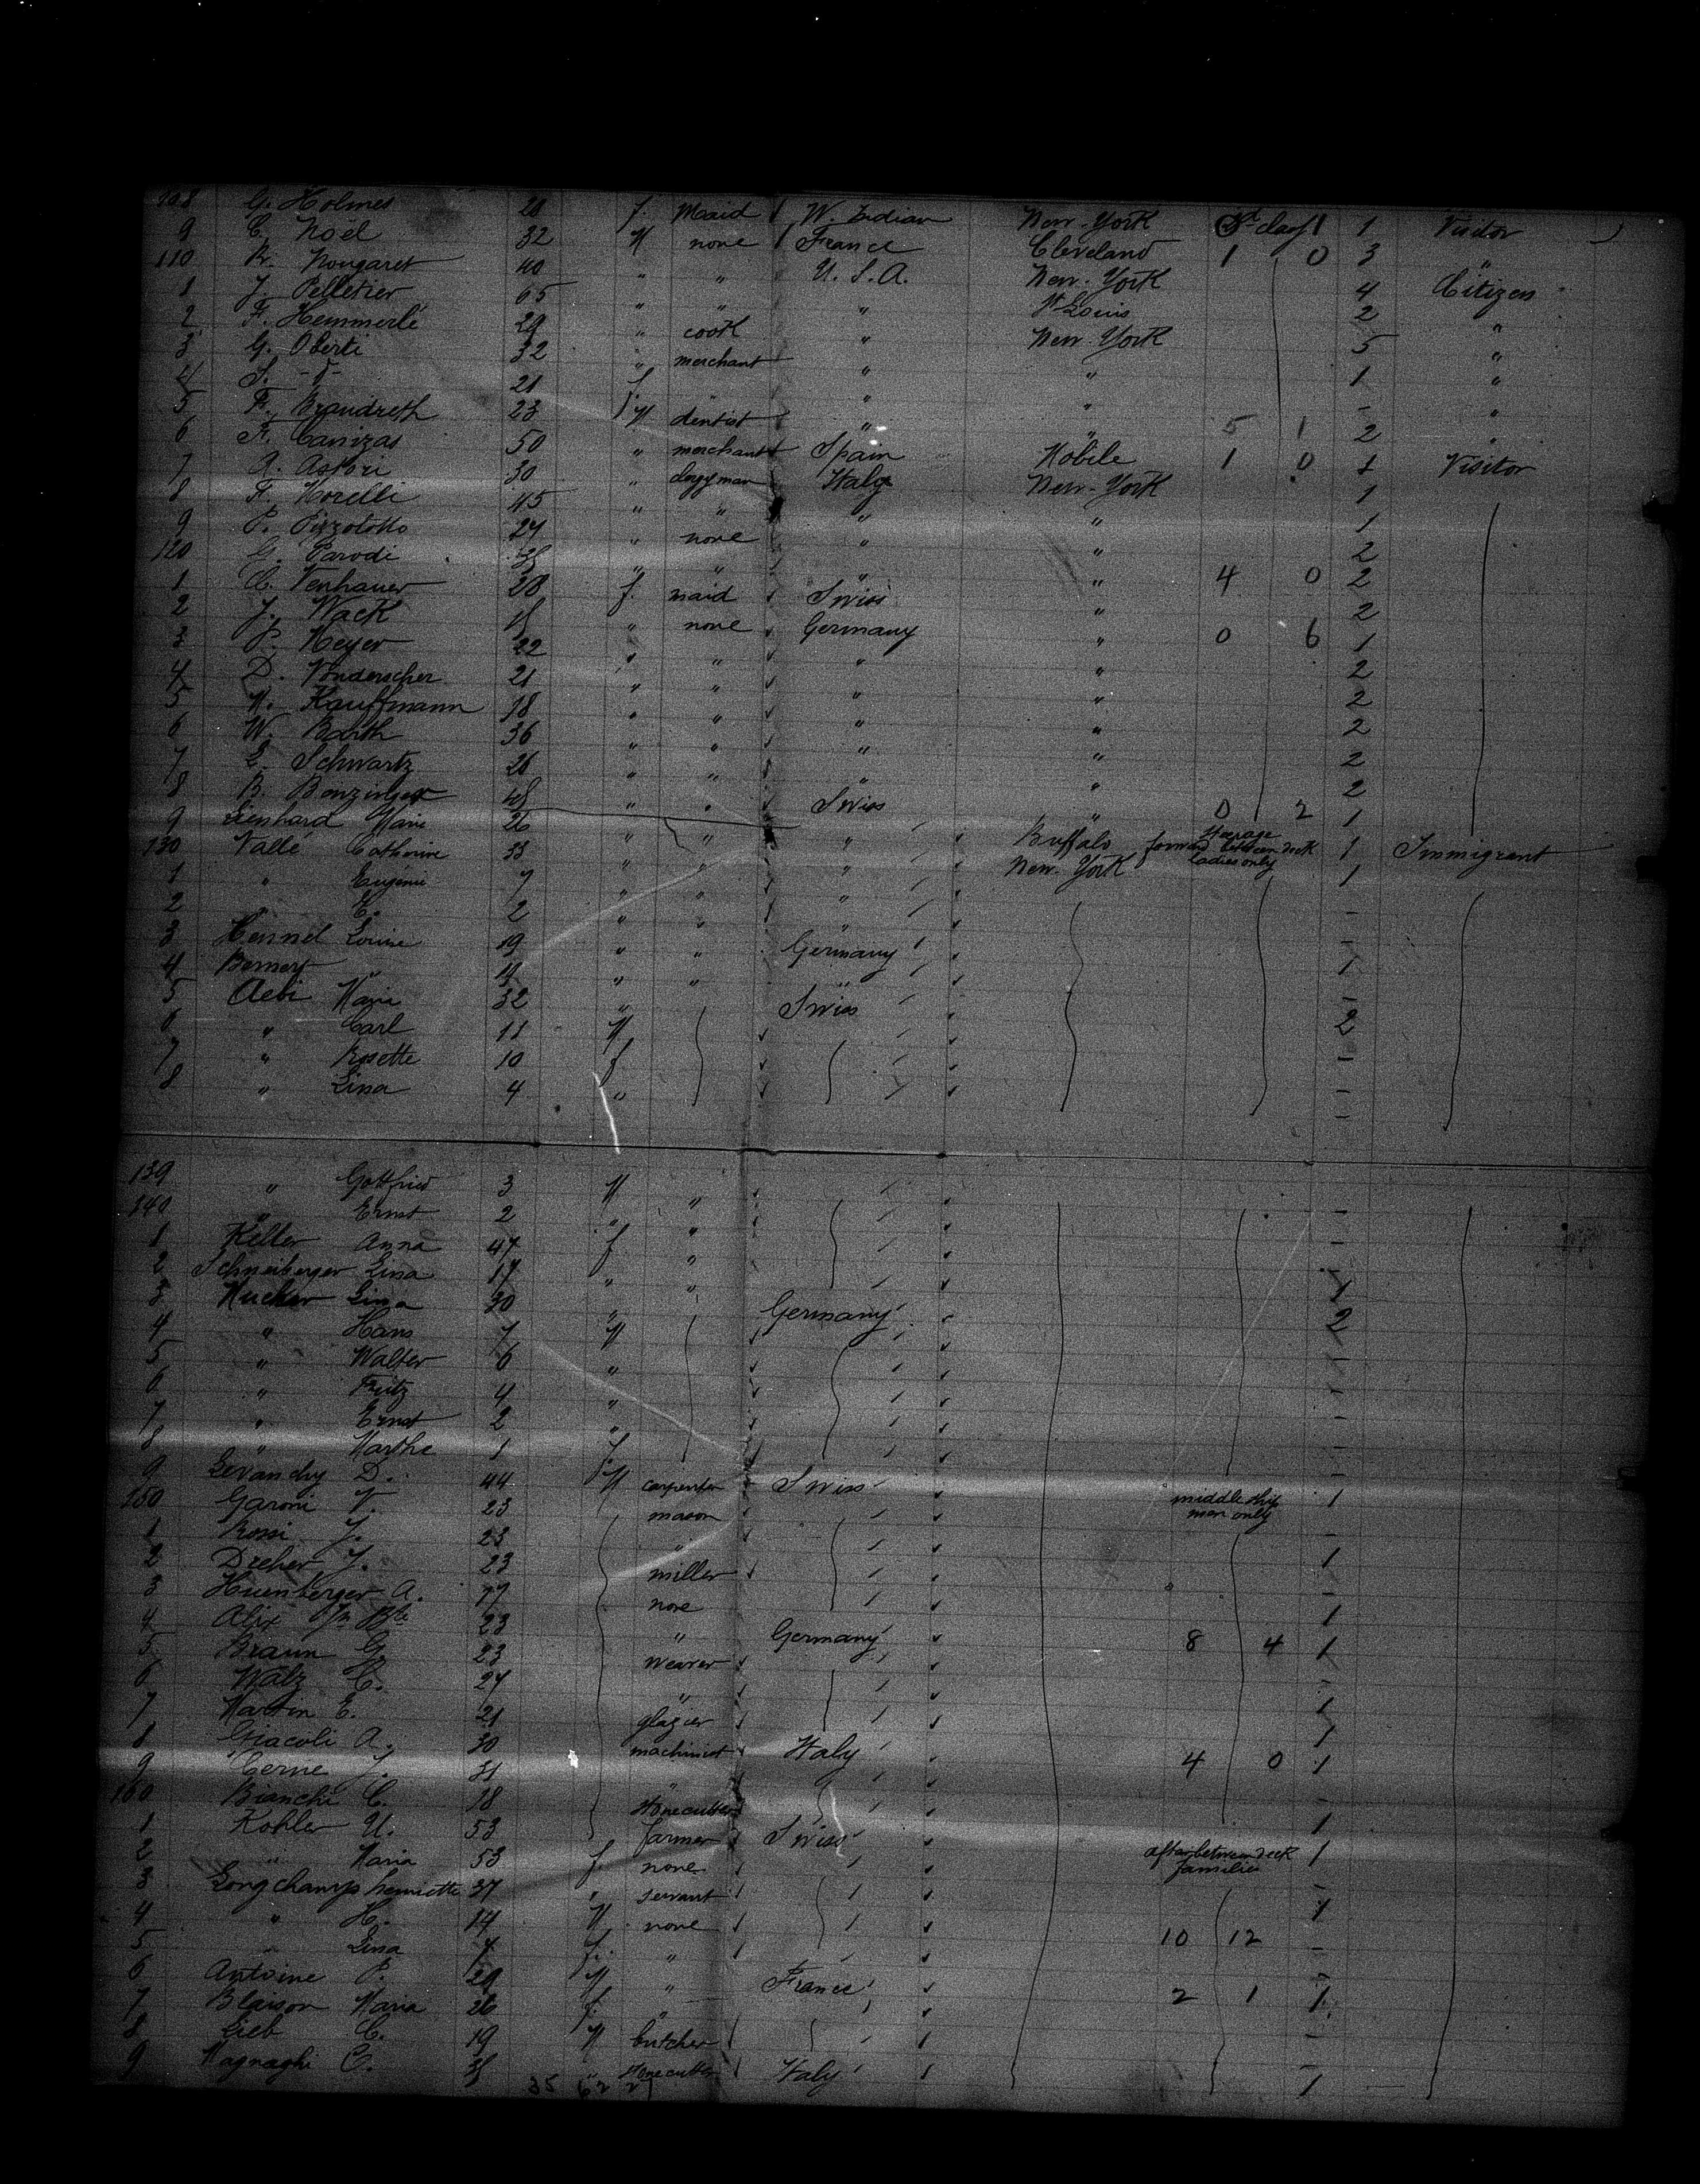 108 G. Holmes 20 f. Maid W. Indian New-York 1 Visitor
9 C. Noël 32 M none France Cleveland 1 0 3 "
110 R. Nougaret 40 " " U.S.A. New-York 4 Citizen
1 J. Pelletier 65 " " " St Louis 2 "
2 F. Hemmerlé 29 " cook " New-York 5 "
3 G. Oberti 32 " merchant " " 1 "
4 S. -d°- 21 f. " " - "
5 F. Brandreth 23 M dentist " " 5 1 2 "
6 F. Canizas 50 " merchant Spain Mobile 1 0 1 Visitor
7 A. Astori 30 " clergyman Italy New-York 1
8 F. Morelli 45 " " " " 1
9 P. Pizzolotto 27 " none " " 2
120 G. Parodi " " " " 4 0 2
1 C. Venhauer 28 f. maid Swiss " 2
2 J. Wack 18 " none Germany " 0 6 1
3 P. Meyer 22 " " " " 2
4 D. Vonderscher 21 " " " " 2
5 M. Kauffmann 18 " " " " 2
6 W. Barth 36 " " " " 2
7 E. Schwartz 28 " " " " 2
8 B. Benzinger " " Swiss " 0 2 1
9 Lienhard Marie 26 " " " Buffalo steerage forward between deck ladies only 1 Immigrant
130 Valle Catherine 33 " " " New-York 1
1 " Eugenie 7 " " " -
2 " E. 2 " " " -
3 Hennel Louise 19 " " Germany 1
4 " 19 " " " -
5 Aebi Maria 32 " Swiss 2
6 " Carl 11 M -
7 " Rosette 10 f -
8 " Lina 4 " -
139 " Gottfried 3 M " -
140 " Ernst 2 " " -
1 Keller Anna 47 f " -
2 Schneiberger Lina 17 " " 1
3 Lina 30 " Germany 2
4 " Hans 7 M -
5 " Walter 6 " -
6 " Fritz 4 " -
7 " Ernst 2 " -
8 " Marthe 1 f. -
9 Levanchy D. 44 M carpenter Swiss middle ship men only 1
150 Garoni V. 23 mason -
1 Rossi J. 23 " 1
2 Dreher J. 23 miller -
3 A. 77 none 1
4 Alix Jn Bte 23 " Germany 8 4 1
5 Braun G. 23 weaver -
6 Walz C. 27 " 1
7 Martin E. 21 glazier 1
8 Giacoli A. 30 machinist Italy 4 0 1
9 Cerne J. 31 " -
160 Bianchi C. 18 stonecutter 1
1 Kohler U. 53 farmer Swiss after between deck families 1
2 " Maria 53 f. none -
3 Longchamps henriette 37 " servant 1
4 " H. 14 M. none 10 12 -
5 " Lina 7 f. " -
6 Antoine P. 29 M " France 2 1 1
7 Blaison Maria 26 f. " -
8 Lieb C. 19 M butcher -
9 Magnaghi C. 38 " stonecutter Italy 1